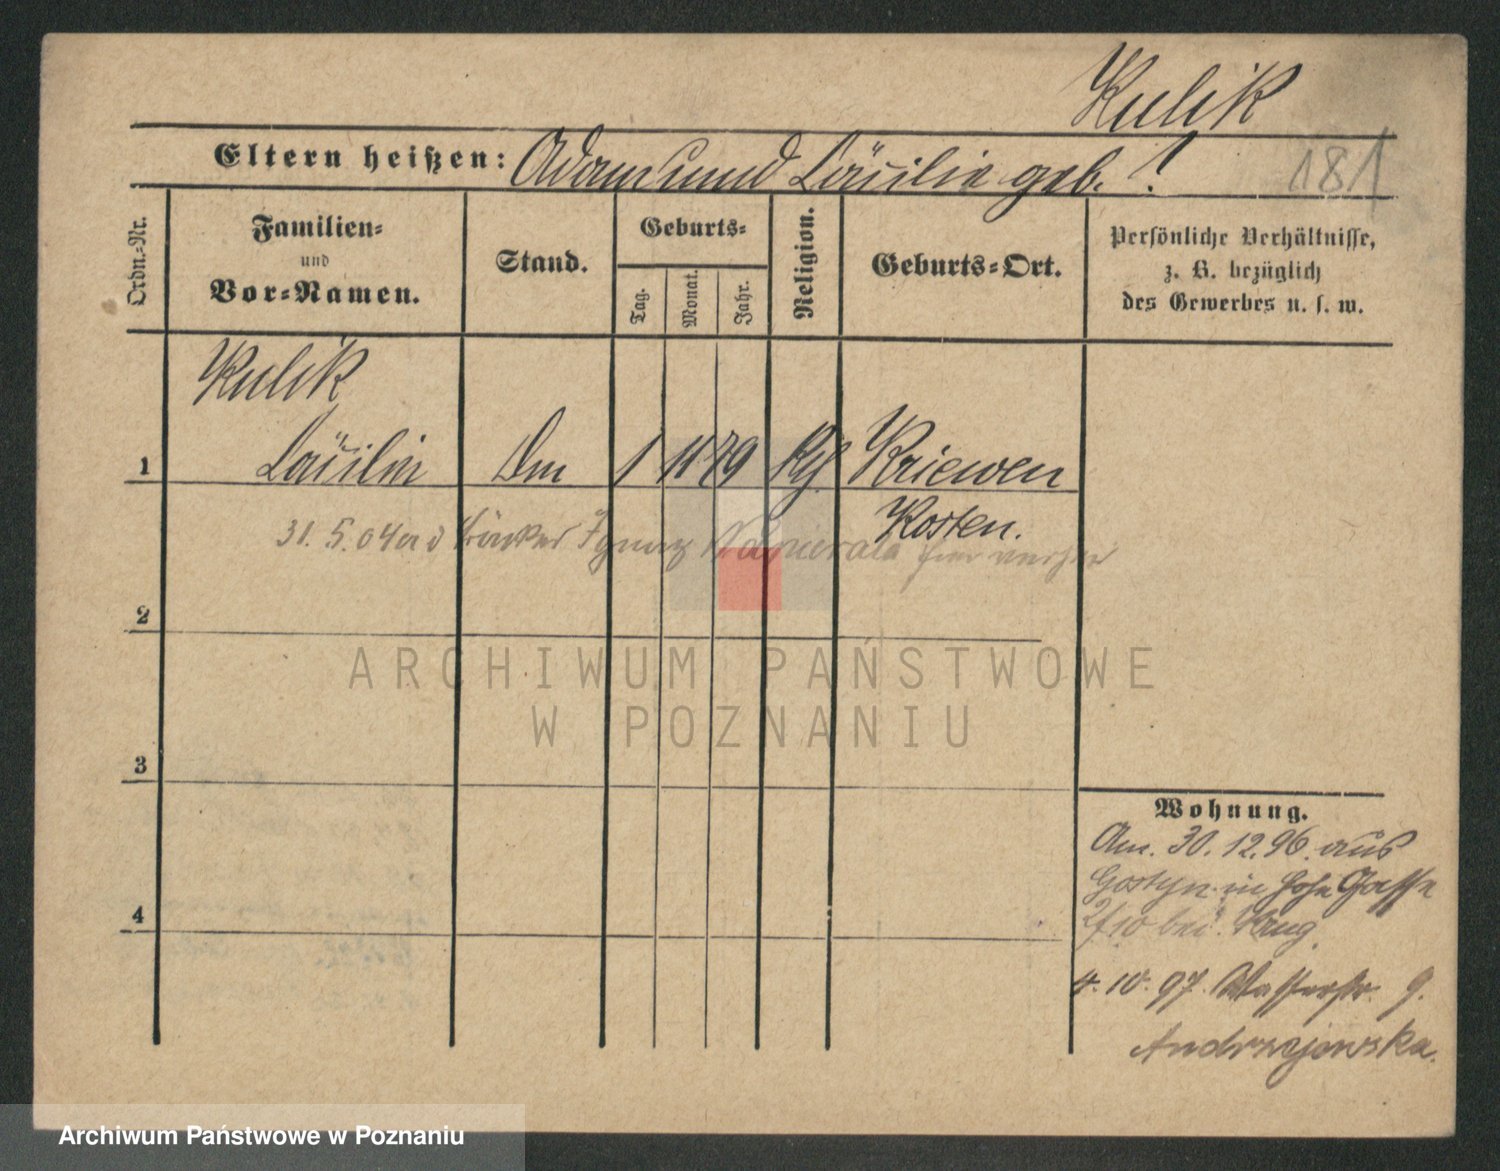 Kulik
Eltern heißen: Adam und Cäcilie geb. !
181
Ordn.=Nr.
Familien=
und
Vor=Namen.
Stand.
Geburts=
Tag.
Monat.
Jahr.
Religion.
Geburts=Ort.
Persönliche Verhältnisse,
z. B. bezüglich
des Gewerbes u. s. w.
Kulik
1 Cäcilie 1 11 79 Kriewen
Kosten.
31. 5. 04 Ignaz hier
2
ARCHIWUM PAŃSTWOWE
W POZNANIU
3
4
Wohnung.
Am. 30. 12. 96. aus
Gostyn in hohe Gasse
bei Krug
4. 10. 97. Wasserstr. 9.
Andrzejewska.
Archiwum Państwowe w Poznaniu